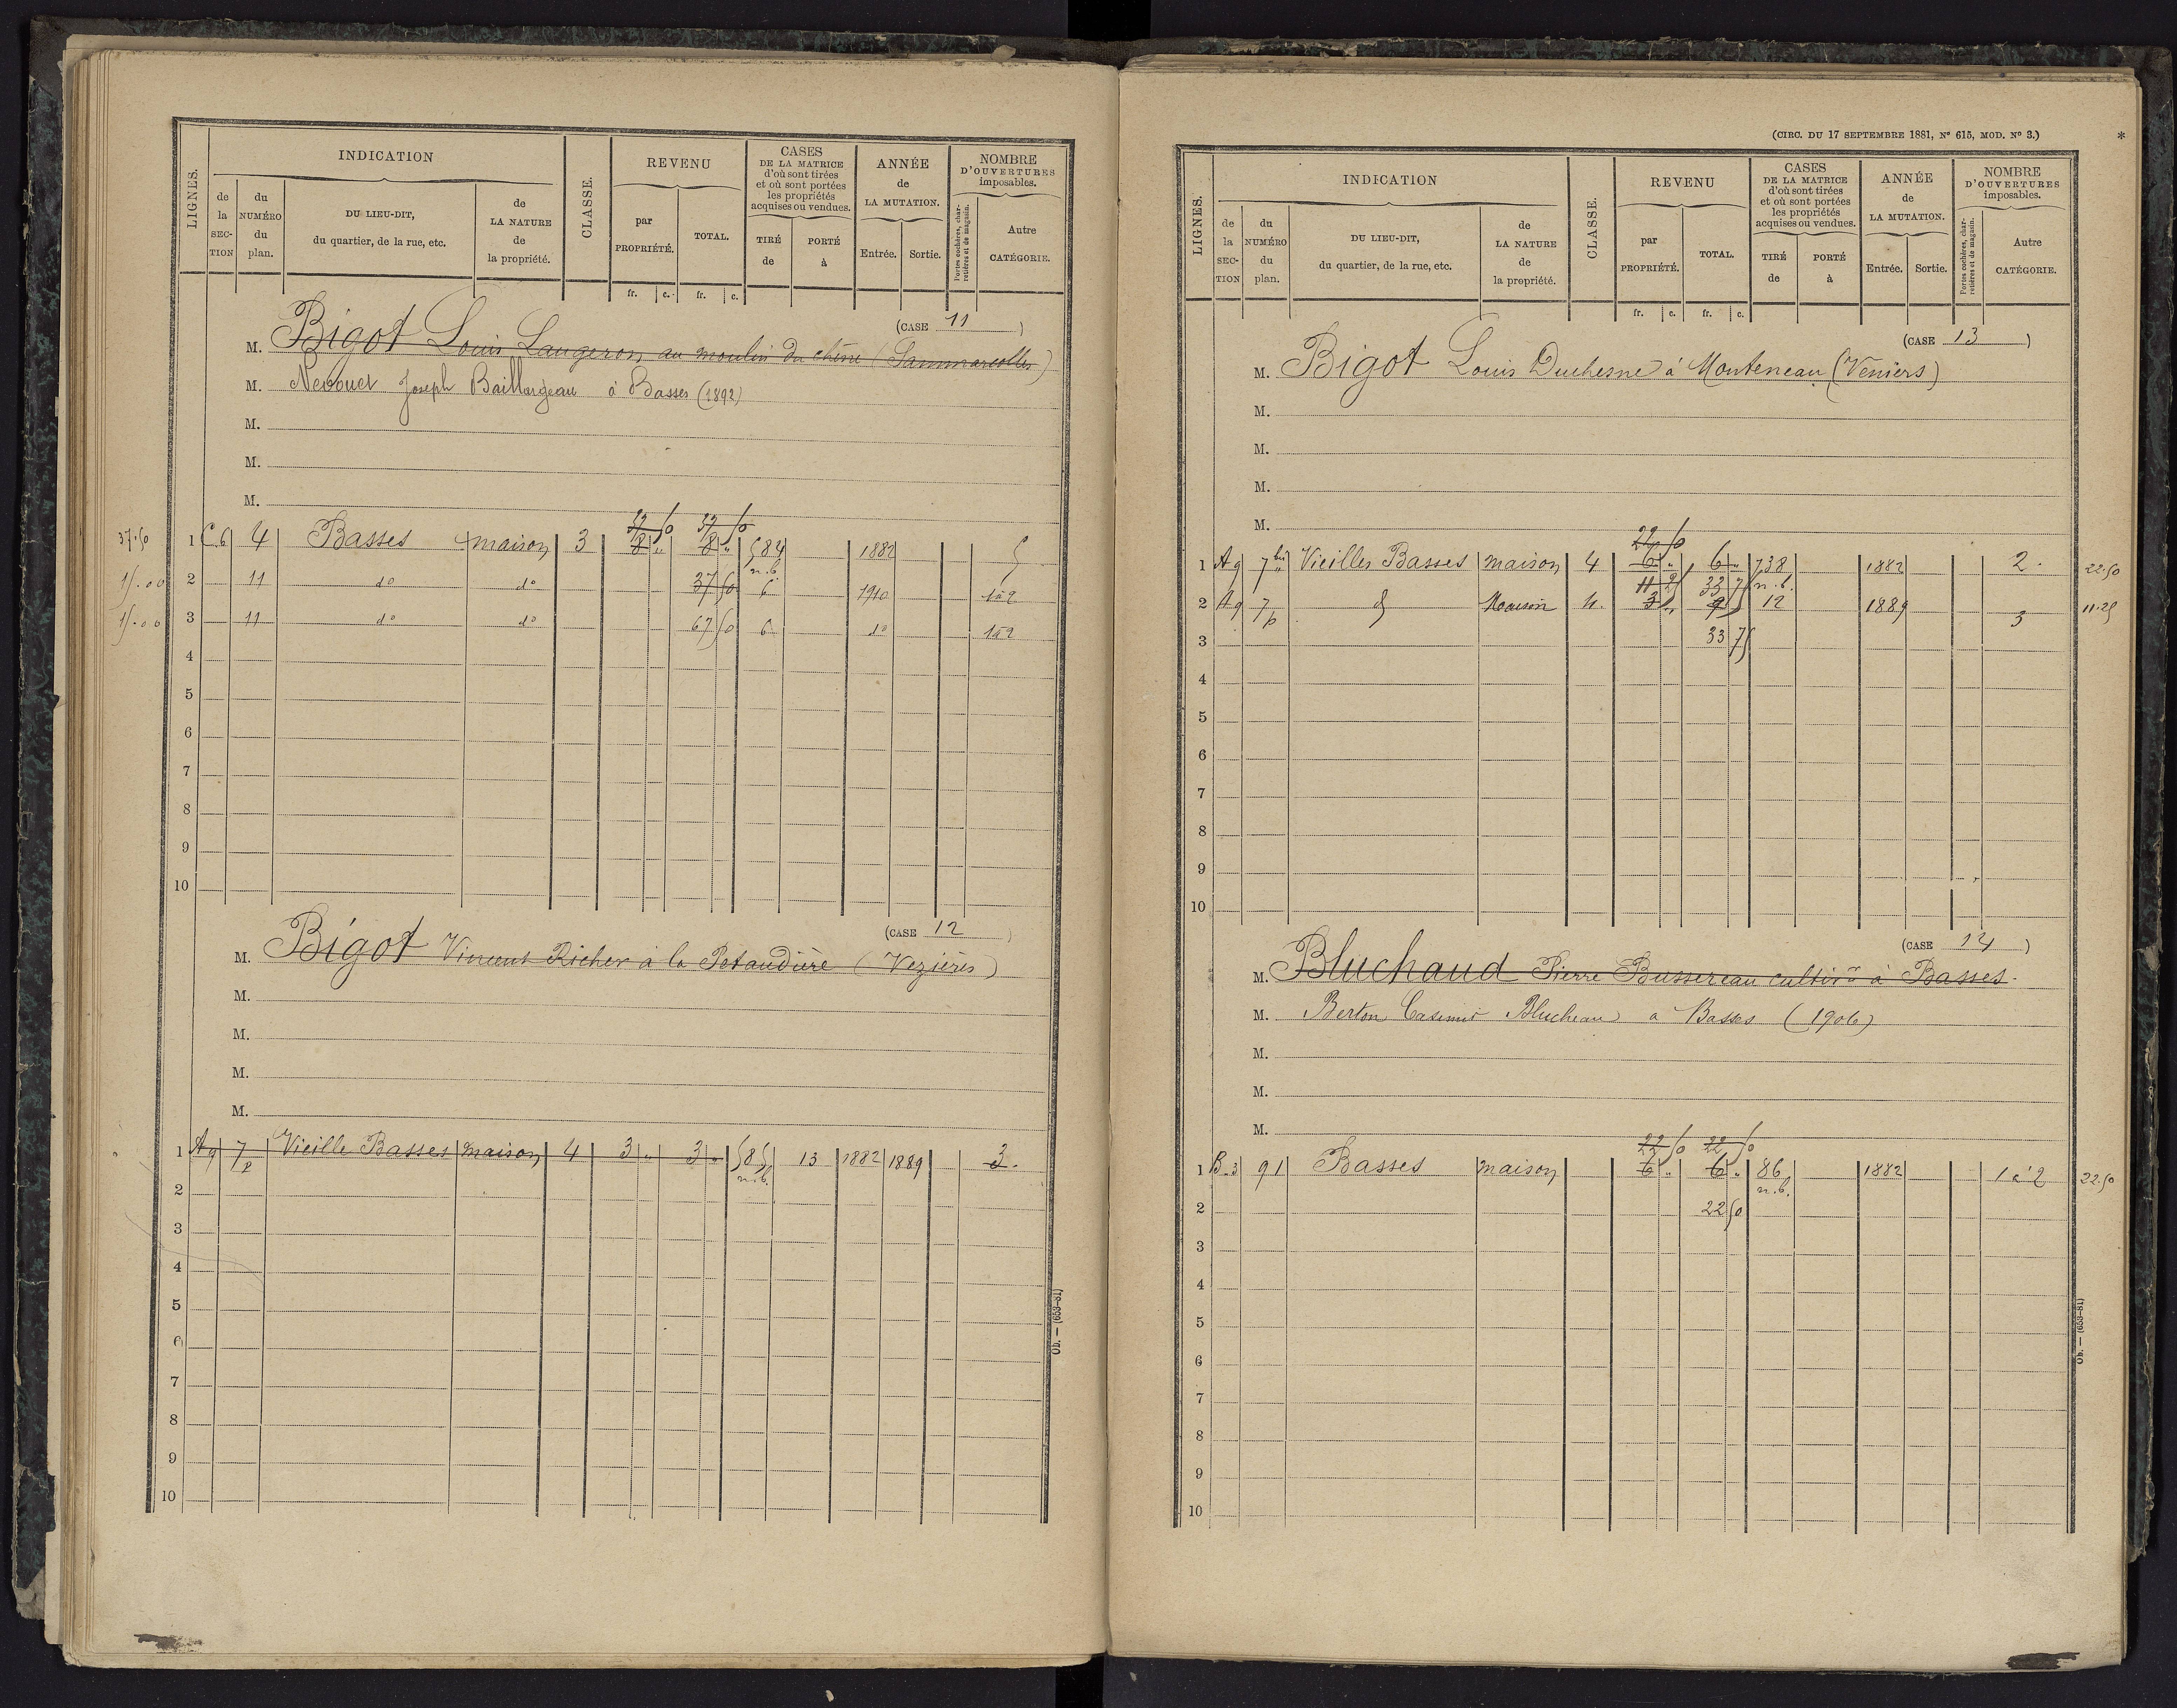 LIGNES.
INDICATION
de la SECTION
du NUMÉRO du plan.
DU LIEU-DIT, du quartier, de la rue, etc.
de LA NATURE de la propriété.
CLASSE.
REVENU
par PROPRIÉTÉ.
TOTAL.
CASES DE LA MATRICE d'où sont tirées et où sont portées les propriétés acquises ou vendues.
TIRÉ de
PORTÉ à
ANNÉE de LA MUTATION.
Entrée.
Sortie.
NOMBRE D'OUVERTURES imposables.
Portes cochères, charretières et de magasin.
Autre CATÉGORIE.
fr. c. fr. c.
(CASE 11)
M. Bigot Louis Laugeron au moulin du chêne (Sammarcolles)
M. Joseph Baillargeau à Basses (1892)
M.
M.
M.
37.50 1 C.6 4 Basses maison 3 8 " 8 " 584 1882 5
n.b.
15.00 2 11 do do 37 50 6 1910 1à2
15.00 3 11 do do 67 50 6 do 1à2
4
5
6
7
8
9
10
(CASE 12)
M. Bigot Vincent Richer à la Petaudière (Vezières)
M.
M.
M.
M.
1 A9 7p Vieille Basses maison 4 3 " 3 " 585 13 1882 1889 3.
n.b.
2
3
4
5
6
7
8
9
10
Ob. — (653-81)
(CIRC. DU 17 SEPTEMBRE 1881, N° 615, MOD. N° 3.)
*
LIGNES.
INDICATION
de la SECTION
du NUMÉRO du plan.
DU LIEU-DIT, du quartier, de la rue, etc.
de LA NATURE de la propriété.
CLASSE.
REVENU
par PROPRIÉTÉ.
TOTAL.
CASES DE LA MATRICE d'où sont tirées et où sont portées les propriétés acquises ou vendues.
TIRÉ de
PORTÉ à
ANNÉE de LA MUTATION.
Entrée.
Sortie.
NOMBRE D'OUVERTURES imposables.
Portes cochères, charretières et de magasin.
Autre CATÉGORIE.
fr. c. fr. c.
(CASE 13)
M. Bigot Louis Duchesne à Monteneau (Veniers)
M.
M.
M.
M.
22 50
1 A9 7 bis Vieilles Basses maison 4 6 " 6 " 738 1882 2. 22.50
11 25 33 75 n.b.
2 A9 7p Maison 4. 3 " 9 12 1889 3 11.25
3 33 75
4
5
6
7
8
9
10
(CASE 14)
M. Bluchaud Pierre Bussereau cultivr à Basses.
M. Berton Casimir Blucheau à Basses (1906)
M.
M.
M.
22 50 22 50
1 B.3 91 Basses maison 6 " 6 " 86 1882 1 à 2 22.50
n.b.
2 22 50
3
4
5
6
7
8
9
10
Ob. — (653-81)